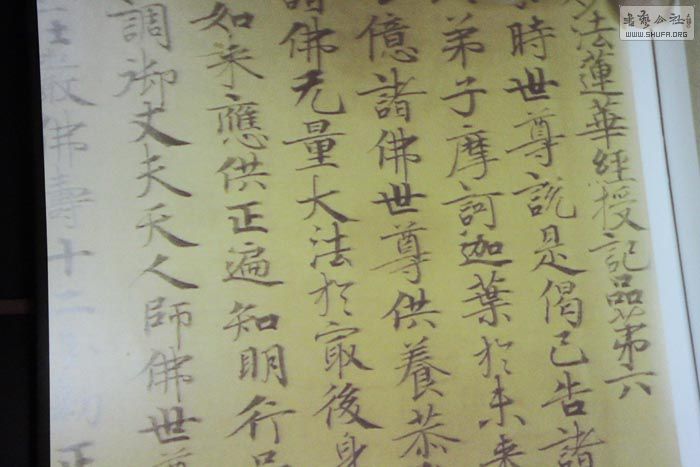 妙法蓮華經授記品第六
時世尊說是偈已告諸
弟子摩訶迦葉於未来
億諸佛世尊供養恭
諸佛无量大法於㝡後身
如来應供正遍知明行
調御丈夫天人師佛世尊
嚴佛壽十二小劫正
書藝公社
WWW.SHUFA.ORG